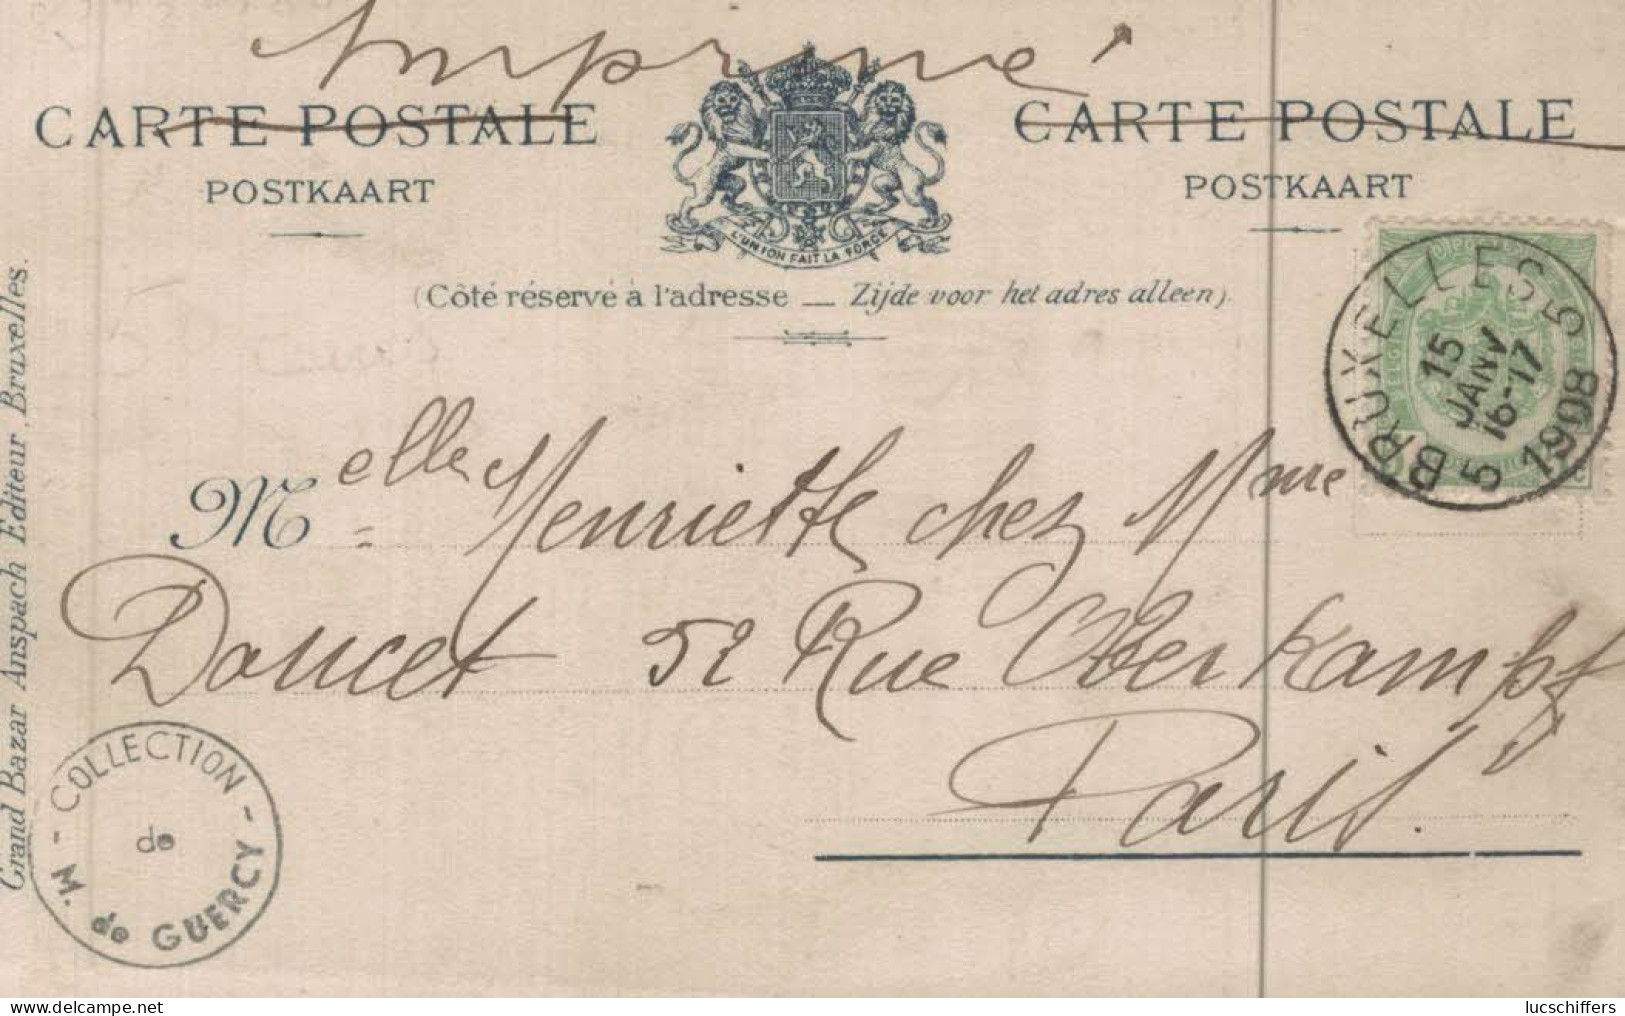 Imprimé
CARTE POSTALE
POSTKAART
L'UNION FAIT LA FORCE
CARTE POSTALE
POSTKAART
(Côté réservé à l'adresse — Zijde voor het adres alleen).
BRUXELLES 5
15
JANV
16-17
1908
5
Melle Henriette chez Mme
Doucet 52 Rue Oberkampf
Paris.
Grand Bazar Anspach Éditeur, Bruxelles.
- COLLECTION -
de
M. de GUERCY
delcampe.net
lucschiffers